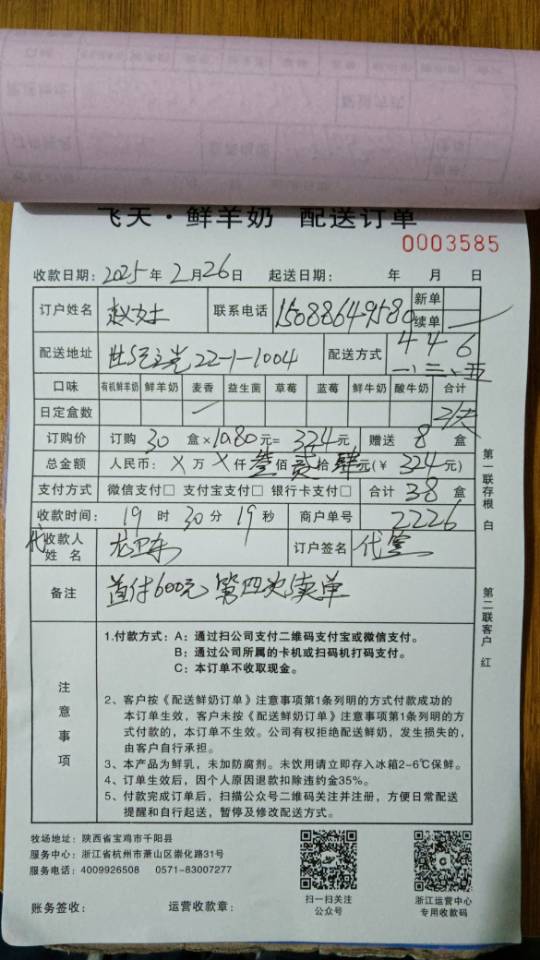 飞天·鲜羊奶 配送订单
0003585
收款日期：2025年2月26日 起送日期： 年 月 日
订户姓名 赵女士 联系电话 15088649580 新单
续单
配送地址 22-1-1004 配送方式 446 一、三、五
口味 有机鲜羊奶 鲜羊奶 麦香 益生菌 草莓 蓝莓 鲜牛奶 酸牛奶 合计
日定盒数 一
订购价 订购 30 盒×10.80元= 324元 赠送 8 盒
总金额 人民币： ×万×仟叁佰贰拾肆元(￥ 324元)
支付方式 微信支付□ 支付宝支付□ 银行卡支付□ 合计 38 盒
收款时间： 19 时 30 分 19 秒 商户单号 2226
代收款人姓名 龙卫东 订户签名 代签
备注 首付600元 第四次续单
注意事项
1.付款方式：A：通过扫公司支付二维码支付宝或微信支付。
B：通过公司所属的卡机或扫码机打码支付。
C：本订单不收取现金。
2、客户按《配送鲜奶订单》注意事项第1条列明的方式付款成功的
本订单生效，客户未按《配送鲜奶订单》注意事项第1条列明的方
式付款的，本订单不生效。公司有权拒绝配送鲜奶，发生损失的，
由客户自行承担。
3、本产品为鲜乳，未加防腐剂。未饮用请立即存入冰箱2-6℃保鲜。
4、订单生效后，因个人原因退款扣除违约金35%。
5、付款完成订单后，扫描公众号二维码关注并注册，方便日常配送
提醒和自行起送，暂停及修改配送方式。
第一联存根 白
第二联客户 红
牧场地址：陕西省宝鸡市千阳县
服务中心：浙江省杭州市萧山区崇化路31号
服务电话：4009926508 0571-83007277
扫一扫关注
公众号
浙江运营中心
专用收款码
账务签收： 运营收款章：